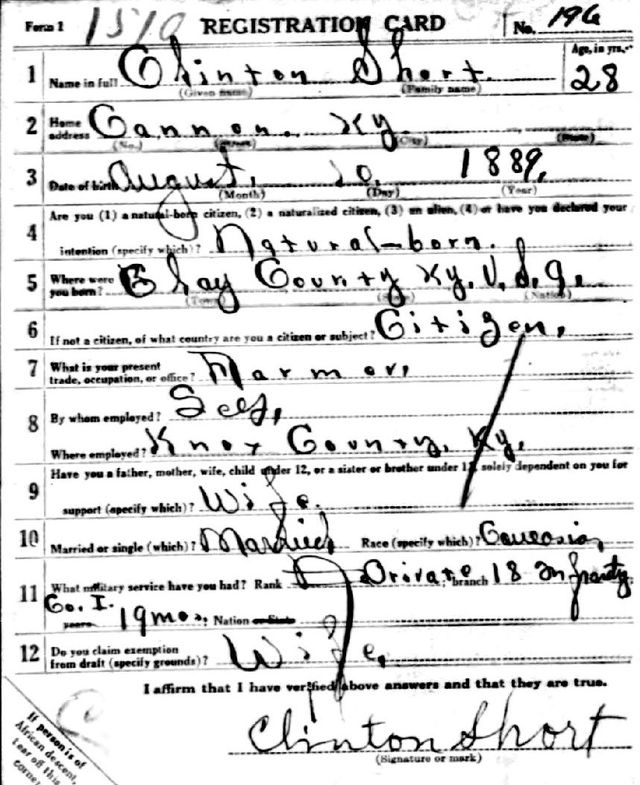 Form 1 1510 REGISTRATION CARD No. 196
1 Name in full Clinton Short Age, in yrs. 28
(Given name) (Family name)
2 Home address Cannon. Ky.
(No.) (Street) (City) (State)
3 Date of birth August, 10, 1889,
(Month) (Day) (Year)
Are you (1) a natural-born citizen, (2) a naturalized citizen, (3) an alien, (4) or have you declared your
4 intention (specify which)? Natural-born.
5 Where were you born? Clay County Ky. U.S.A.
(Town) (State) (Nation)
6 If not a citizen, of what country are you a citizen or subject? Citizen,
7 What is your present trade, occupation, or office? Farmer,
8 By whom employed? Self,
Where employed? Knox County, Ky.
9 Have you a father, mother, wife, child under 12, or a sister or brother under 12, solely dependent on you for
support (specify which)? Wife
10 Married or single (which)? Married, Race (specify which)? Caucasian,
11 What military service have you had? Rank Private, branch 18 Infantry
Co. I.
years 19 mos. Nation or State
12 Do you claim exemption from draft (specify grounds)? Wife,
I affirm that I have verified above answers and that they are true.
Clinton Short
(Signature or mark)
If person is of
African descent,
tear off this
corner